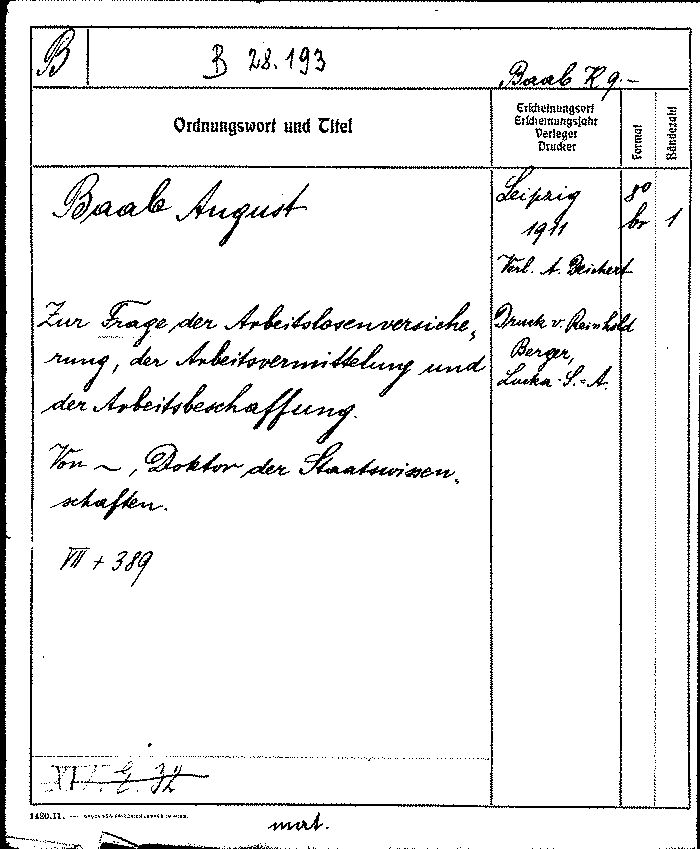 B
B 28.193
Baab K 9.-
Ordnungswort und Titel
Erscheinungsort
Erscheinungsjahr
Verleger
Drucker
Format
Bändezahl
Baab August
Leipzig
1911
Verl. A. Deichert
8°
br
1
Zur Frage der Arbeitslosenversiche-
rung, der Arbeitsvermittelung und
der Arbeitsbeschaffung.
Druck v. Reinhold
Berger,
Lucka-S.-A.
Von ~, Doktor der Staatswissen-
schaften.
VII + 389
1420.II. —
mat.